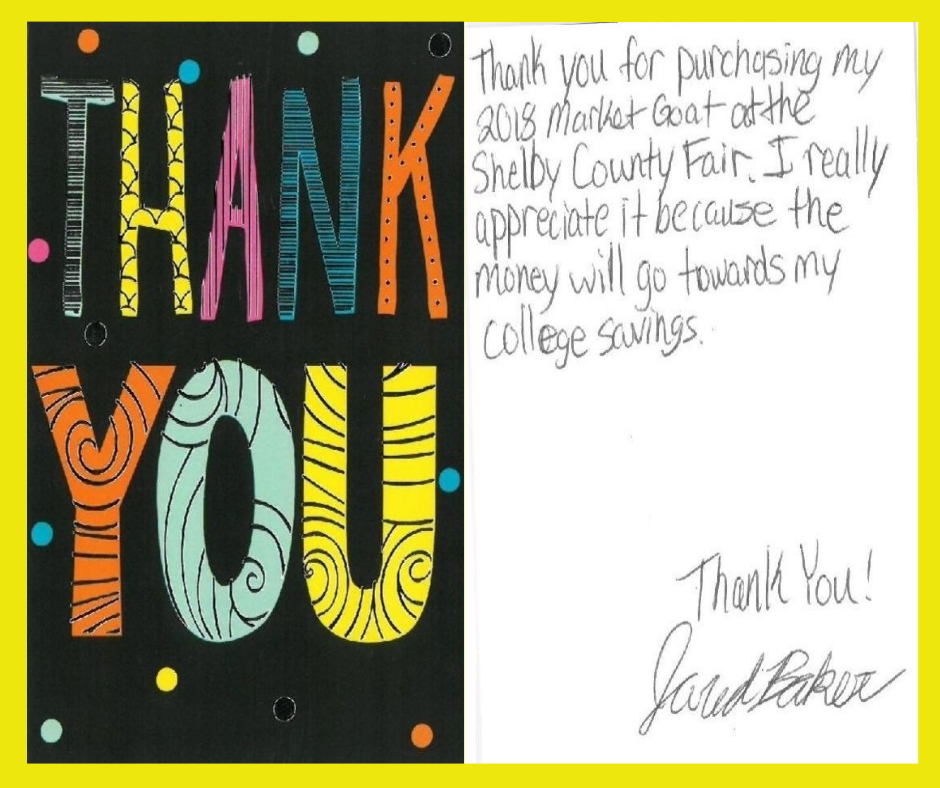 THANK
YOU
Thank you for purchasing my
2018 Market Goat at the
Shelby County Fair. I really
appreciate it because the
money will go towards my
college savings.
Thank You!
Jared Baker